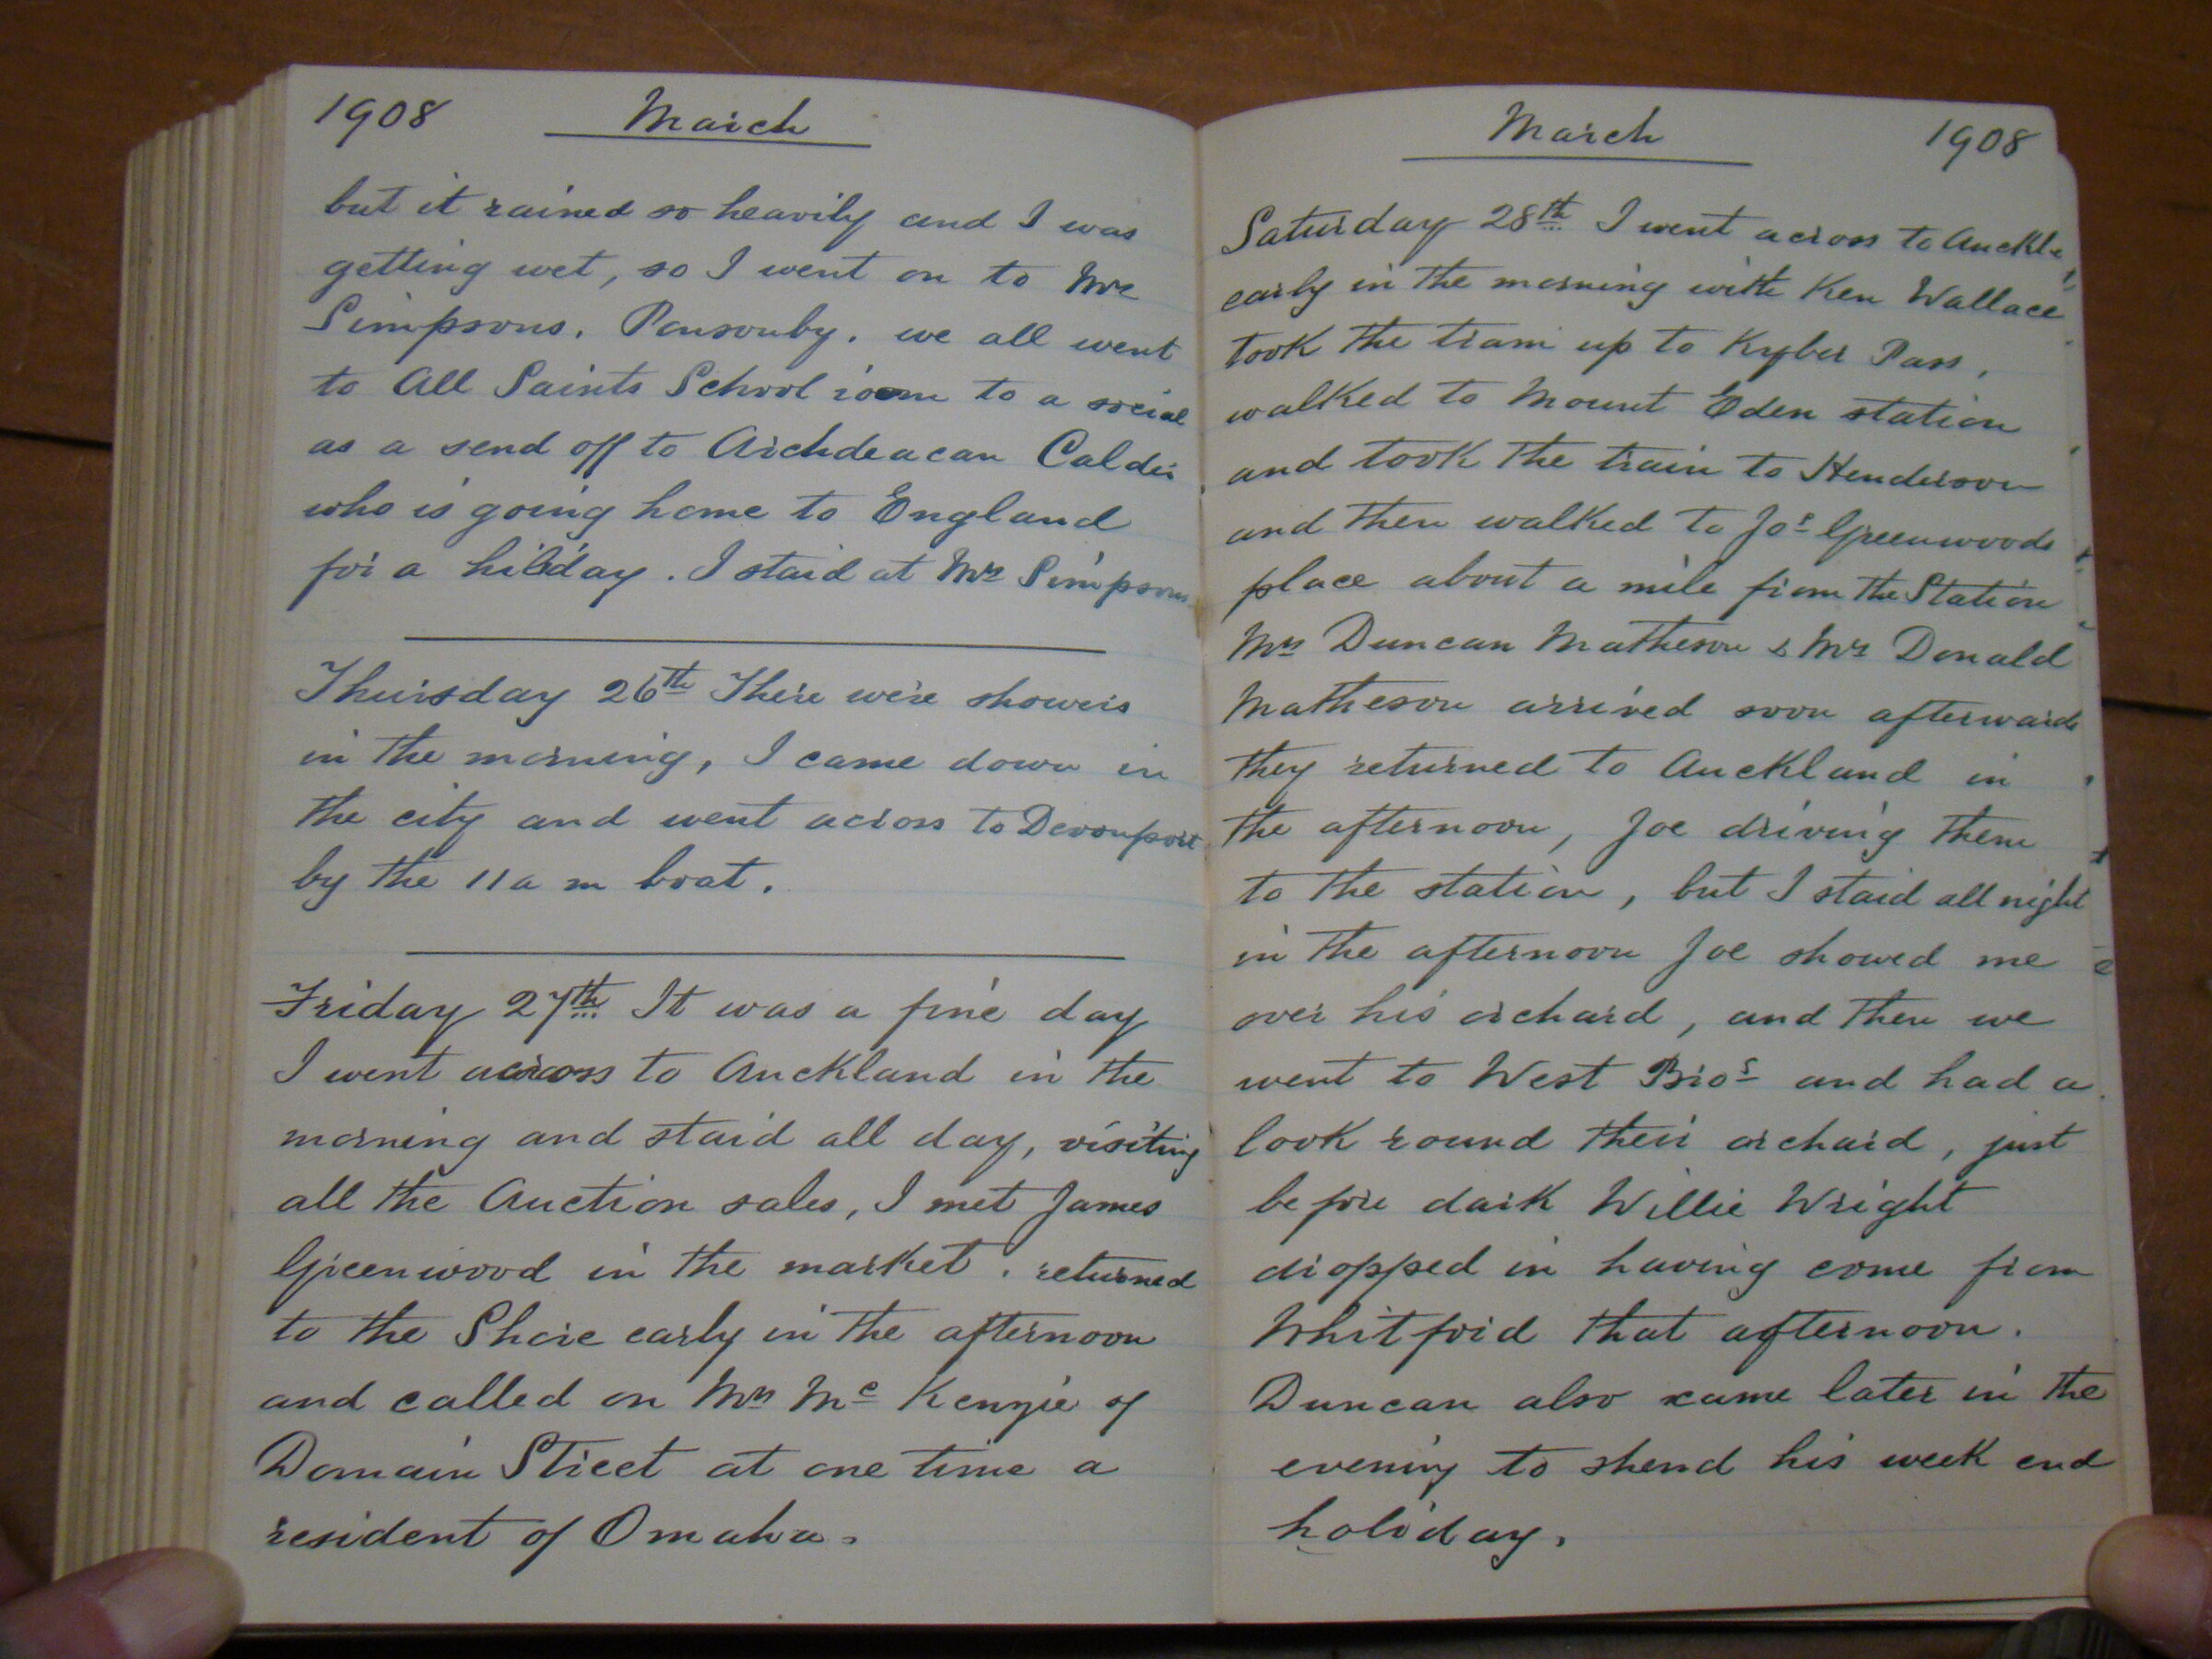 1908 March
but it rained so heavily and I was
getting wet, so I went on to Mr
Simpsons. Ponsonby. we all went
to All Saints School room to a social
as a send off to Archdeacan Calder
who is going home to England
for a holiday. I staid at Mr Simpsons
Thursday 26th There were showers
in the morning, I came down in
the city and went across to Devonport
by the 11 a m boat.
Friday 27th It was a fine day
I went across to Auckland in the
morning and staid all day, visiting
all the Auction sales, I met James
Greenwood in the market. returned
to the Shore early in the afternoon
and called on Mrs Mc Kenzie of
Domain Street at one time a
resident of Omaha.
March 1908
Saturday 28th I went across to
early in the morning with Ken Wallace
took the tram up to Kyber Pass,
walked to Mount Eden station
and took the train to Henderson
and then walked to Jos Greenwoods
place about a mile from the Station
Mrs Duncan Matheson & Mr Donald
Matheson arrived soon afterwards
they returned to Auckland in
the afternoon, Joe driving them
to the station, but I staid all night
in the afternoon Joe showed me
over his orchard, and then we
went to West Bros and had a
look round their orchard, just
before dark Willie Wright
dropped in having come from
Whitford that afternoon.
Duncan also came later in the
evening to shend his week end
holiday.